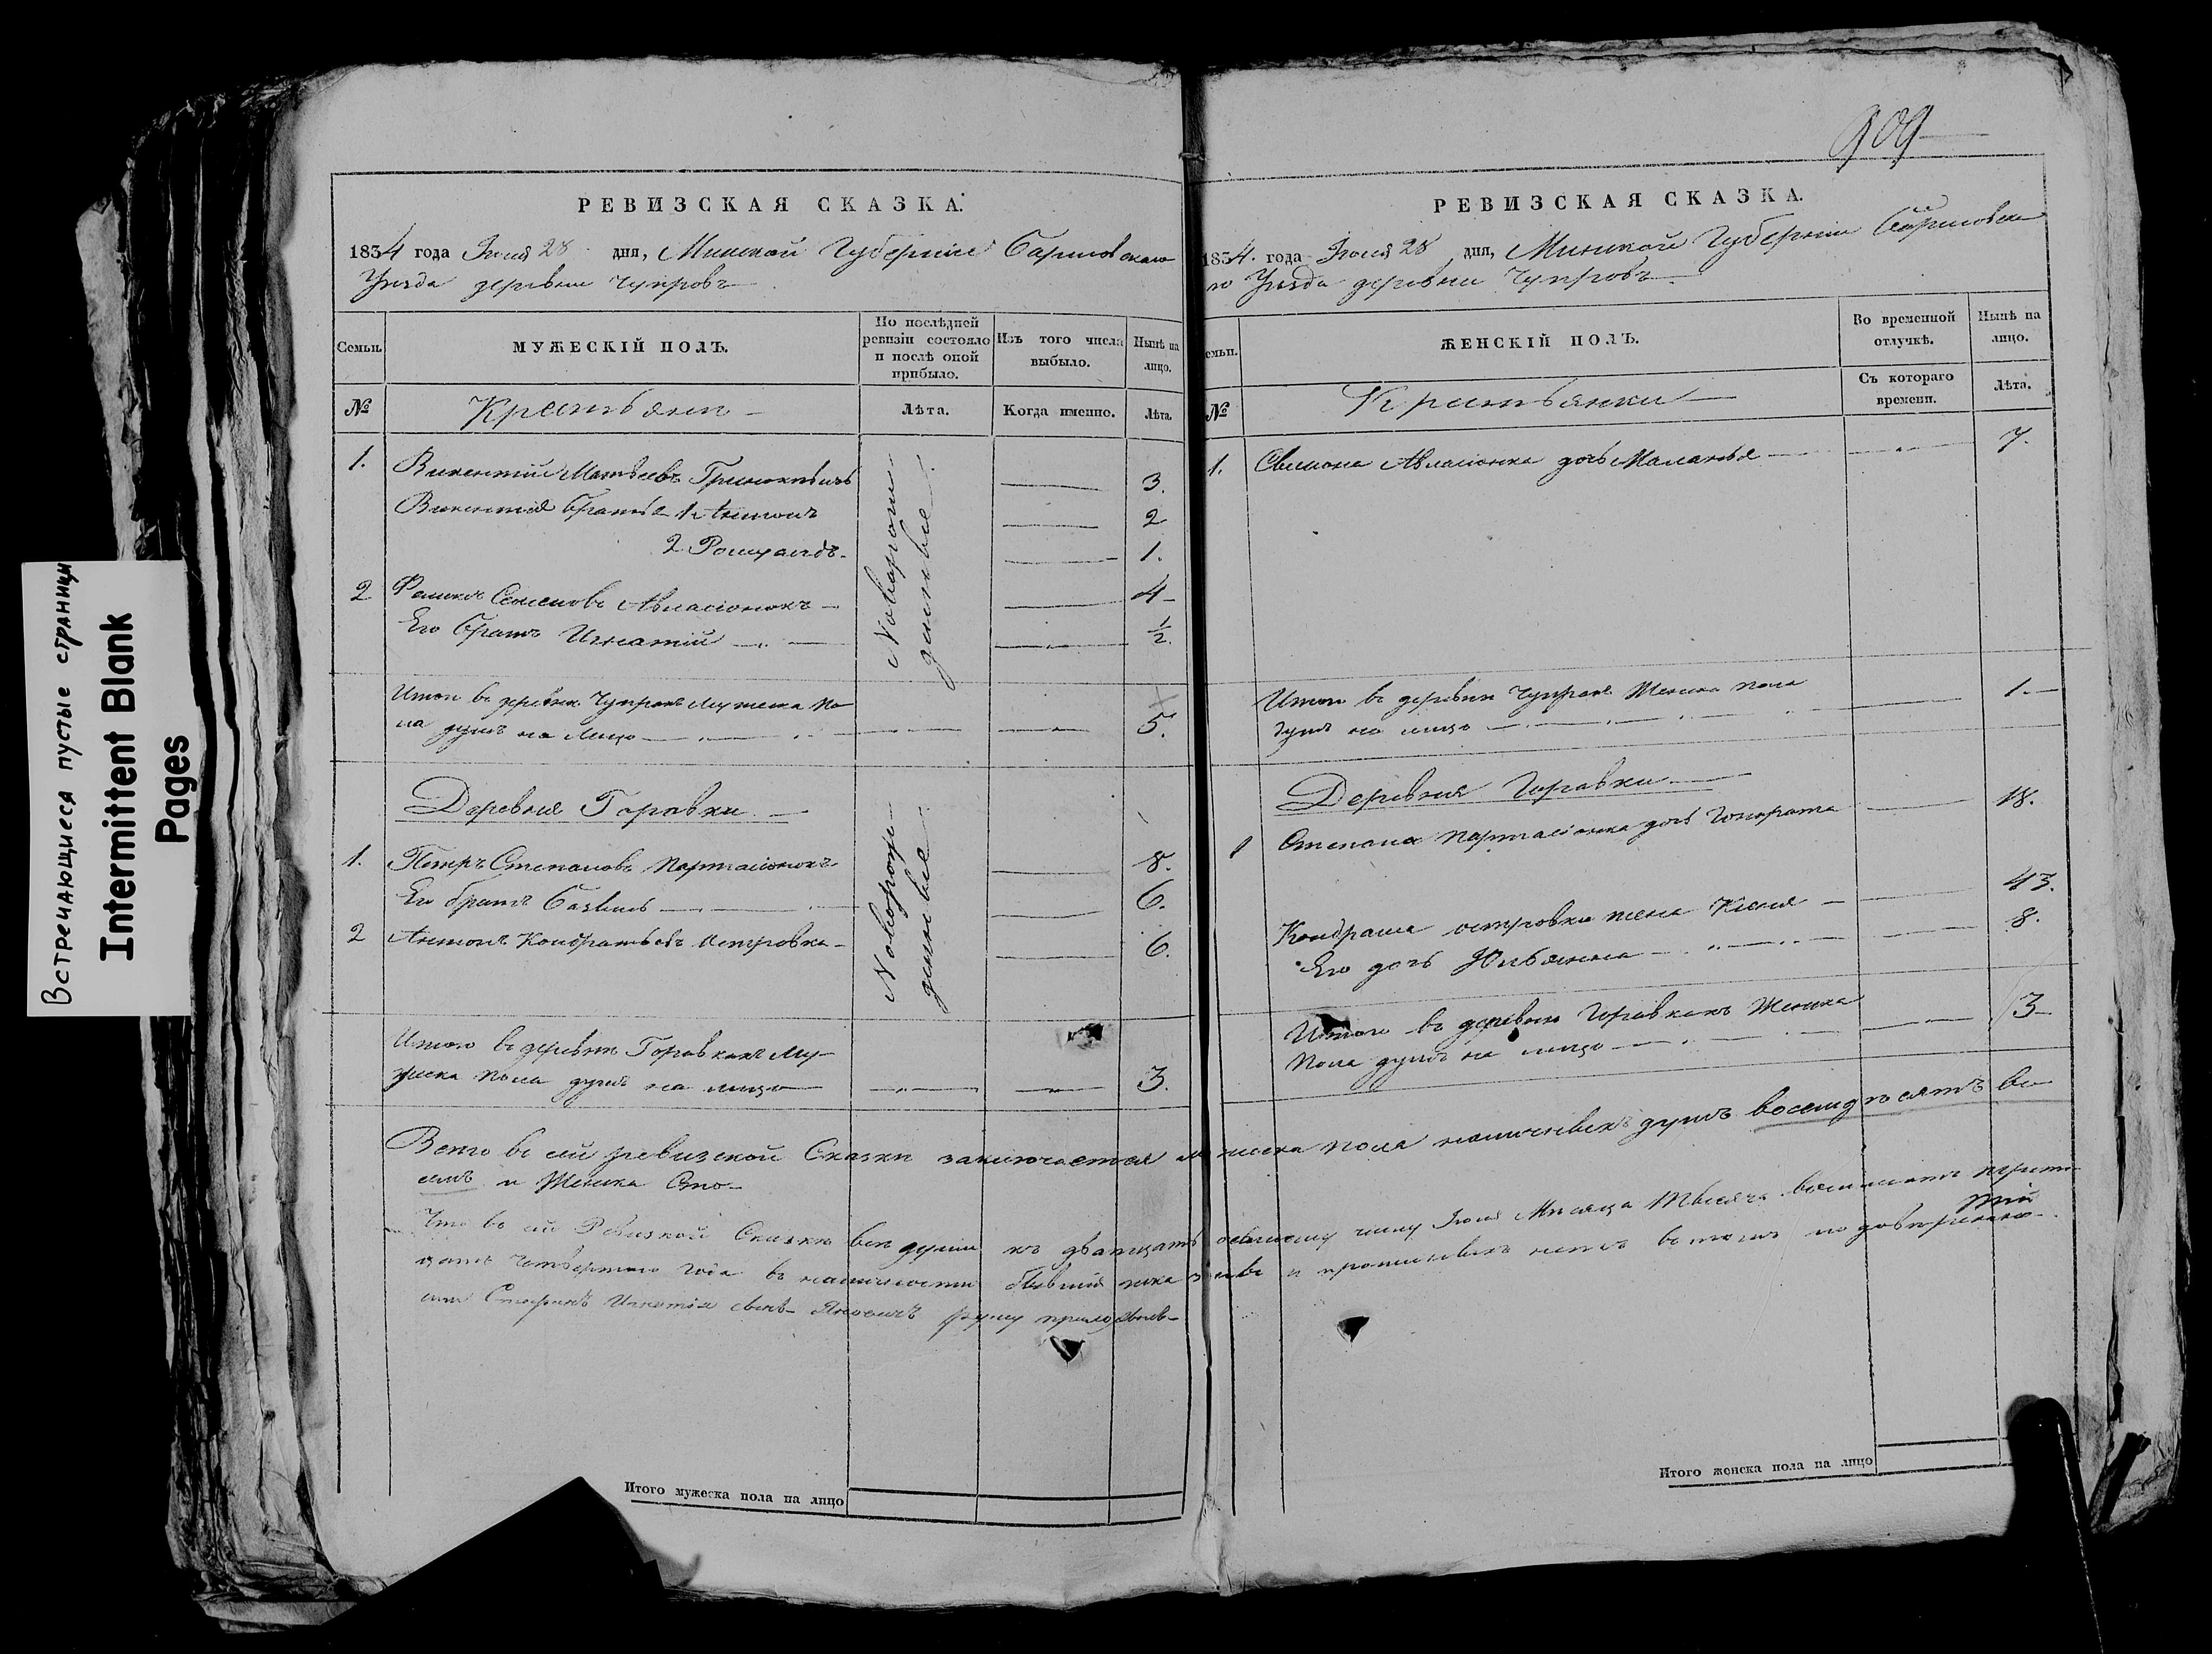 Встречающиеся пустые страницы
Intermittent Blank
Pages
РЕВИЗСКАЯ СКАЗКА.
1834 года Июля 28 дня, Минской Губерніи Борисовскаго
Уезда деревни Чупровъ
Семьи.
МУЖЕСКІЙ ПОЛЪ.
По послѣдней
ревизіи состояло
и послѣ оной
прибыло.
Изъ того числа
выбыло.
Нынѣ на
лицо.
№
Крестьяне
Лѣта.
Когда именно.
Лѣта.
Новорож
денные
1. Викентій Матвеевъ 3.
Викентія братья 1. Антонъ 2
2 Ромуальдъ 1.
2 Феликсъ Семеновъ Авласіонокъ 4
Его братъ Игнатій 1/2.
Итого въ деревни Чупрахъ мужеска по
ла душъ на лицо 5.
Деревня Горавки
Новорож
денные
1. Петръ Степановъ Партасіонокъ 8.
Его братъ 6.
2 Антонъ Кондратьевъ Островка 6.
Итого въ деревни Горавкахъ му
жеска пола душъ на лицо 3.
909
РЕВИЗСКАЯ СКАЗКА.
1834. года Июля 28 дня, Минской Губерніи Борисовска
го Уезда деревни Чупровъ
Семьи.
ЖЕНСКІЙ ПОЛЪ.
Во временной
отлучкѣ.
Нынѣ на
лицо.
№
Крестьянки
Съ котораго
времени.
Лѣта.
1. Авласіонка дочь Маланья 7.
Итого въ деревни Чупрахъ Женска пола 1.
душъ на лицо
Деревня Горавки
1 Степана Партасіонка дочь 18.
Кондрата островки жена 43.
Его дочь Юльянна 8.
Итого въ деревни Горавкахъ Женска
пола душъ на лицо 3
Всего въ сей ревизской Сказки заключается мужеска пола наличныхъ душъ восемдесятъ во
семь и Женска Сто
Что въ сей Ревизкой Сказки все души къ двадцать осьмому числу Июля Месяца тысяча восемьсотъ тритъ
цать четвертого года въ наличности и въ томъ по
руку приложилъ
Итого мужеска пола на лицо
Итого женска пола на лицо